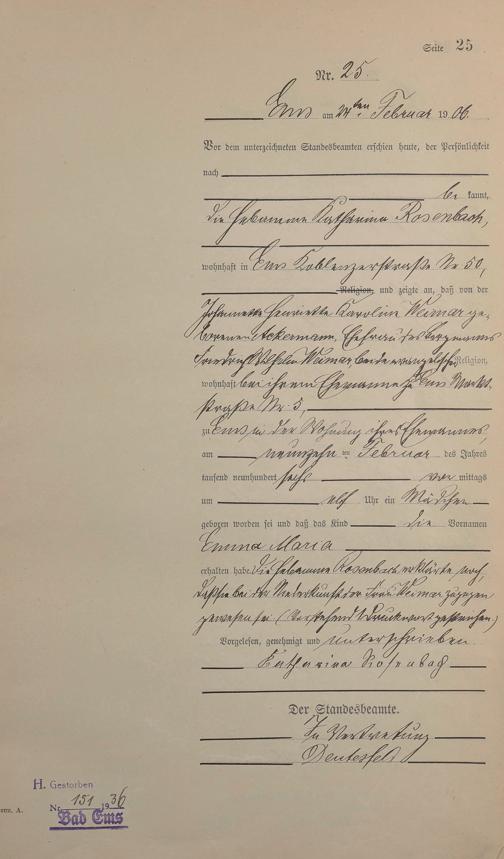 Seite 25
Nr. 25.
Ems am 24ten Februar 1906.
Vor dem unterzeichneten Standesbeamten erschien heute, der Persönlichkeit
nach
be kannt,
die Hebamme Katharina Rosenbach,
wohnhaft in Ems Koblenzerstraße Nr 50,
Religion, und zeigte an, daß von der
Johannette Henriette Karoline Weimar ge-
borenen Ackermann, Ehefrau des Bergmanns
Friedrich Wilhelm Weimar, beide evangelischer Religion,
wohnhaft bei ihrem Ehemanne zu Ems
straße Nr 5,
zu Ems in der Wohnung ihres Ehemannes,
am neunzehn ten Februar des Jahres
tausend neunhundert sechs vor mittags
um elf Uhr ein Mädchen
geboren worden sei und daß das Kind die Vornamen
Emma Maria
erhalten habe. Die Hebamme Rosenbach erklärte noch,
daß sie bei der Niederkunft der Frau Weimar zugegen
gewesen sei (Vorstehend 1 Druckwort gestrichen)
Vorgelesen, genehmigt und unterschrieben
Katharina Rosenbach
Der Standesbeamte.
In Vertretung
H. Gestorben
Nr. 151 1936
Bad Ems